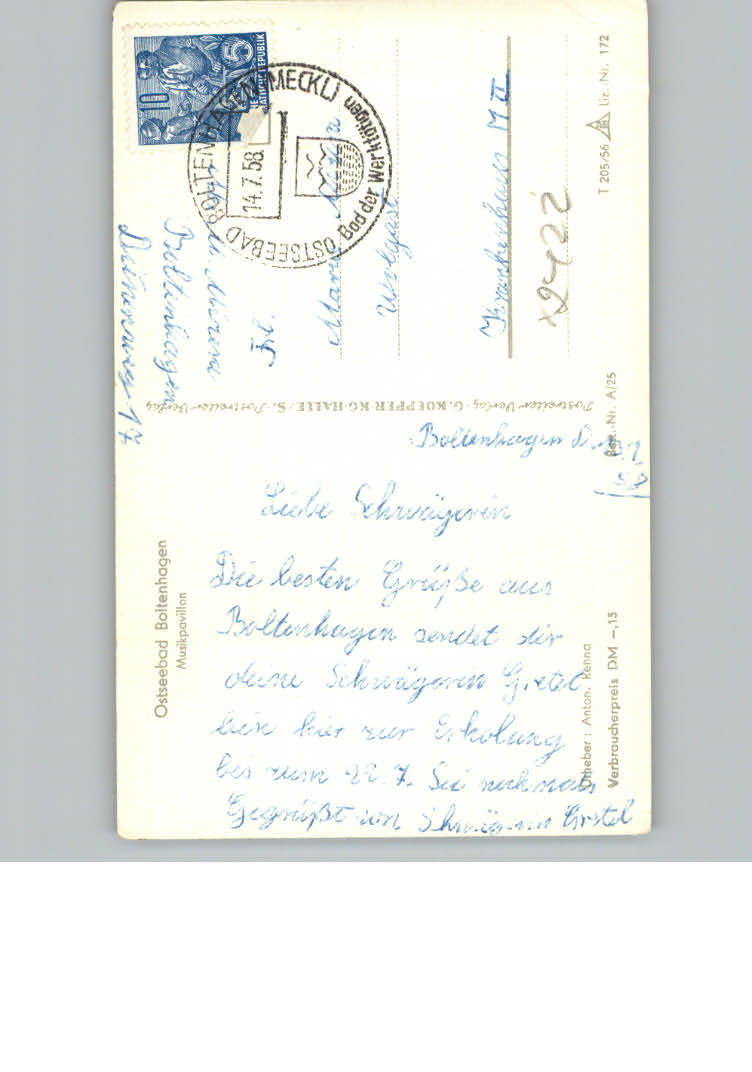 Ostseebad Boltenhagen
Musikpavillon
Boltenhagen d.
58
Liebe Schwägerin
Die besten Grüße aus
Boltenhagen sendet dir
deine Schwägerin Gretel
bin hier zur Erholung
bis zum 22. 7. Sei nochmals
Gegrüßt von Schwägerin Gretel
Urheber: Anton. Renna
Verbraucherpreis DM –,15
Postreiter Verlag · G. KOEPPER · KG · HALLE/S. · Postreiter Verlag
Best.-Nr. A/25
10
5
OSTSEEBAD BOLTENHAGEN (MECKL)
14.7.58
Bad der Werktätigen
Boltenhagen
Dünenweg 17
Frl.
Wolgast
Krankenhaus M II
x2422
T 205/56
Liz.-Nr. 172